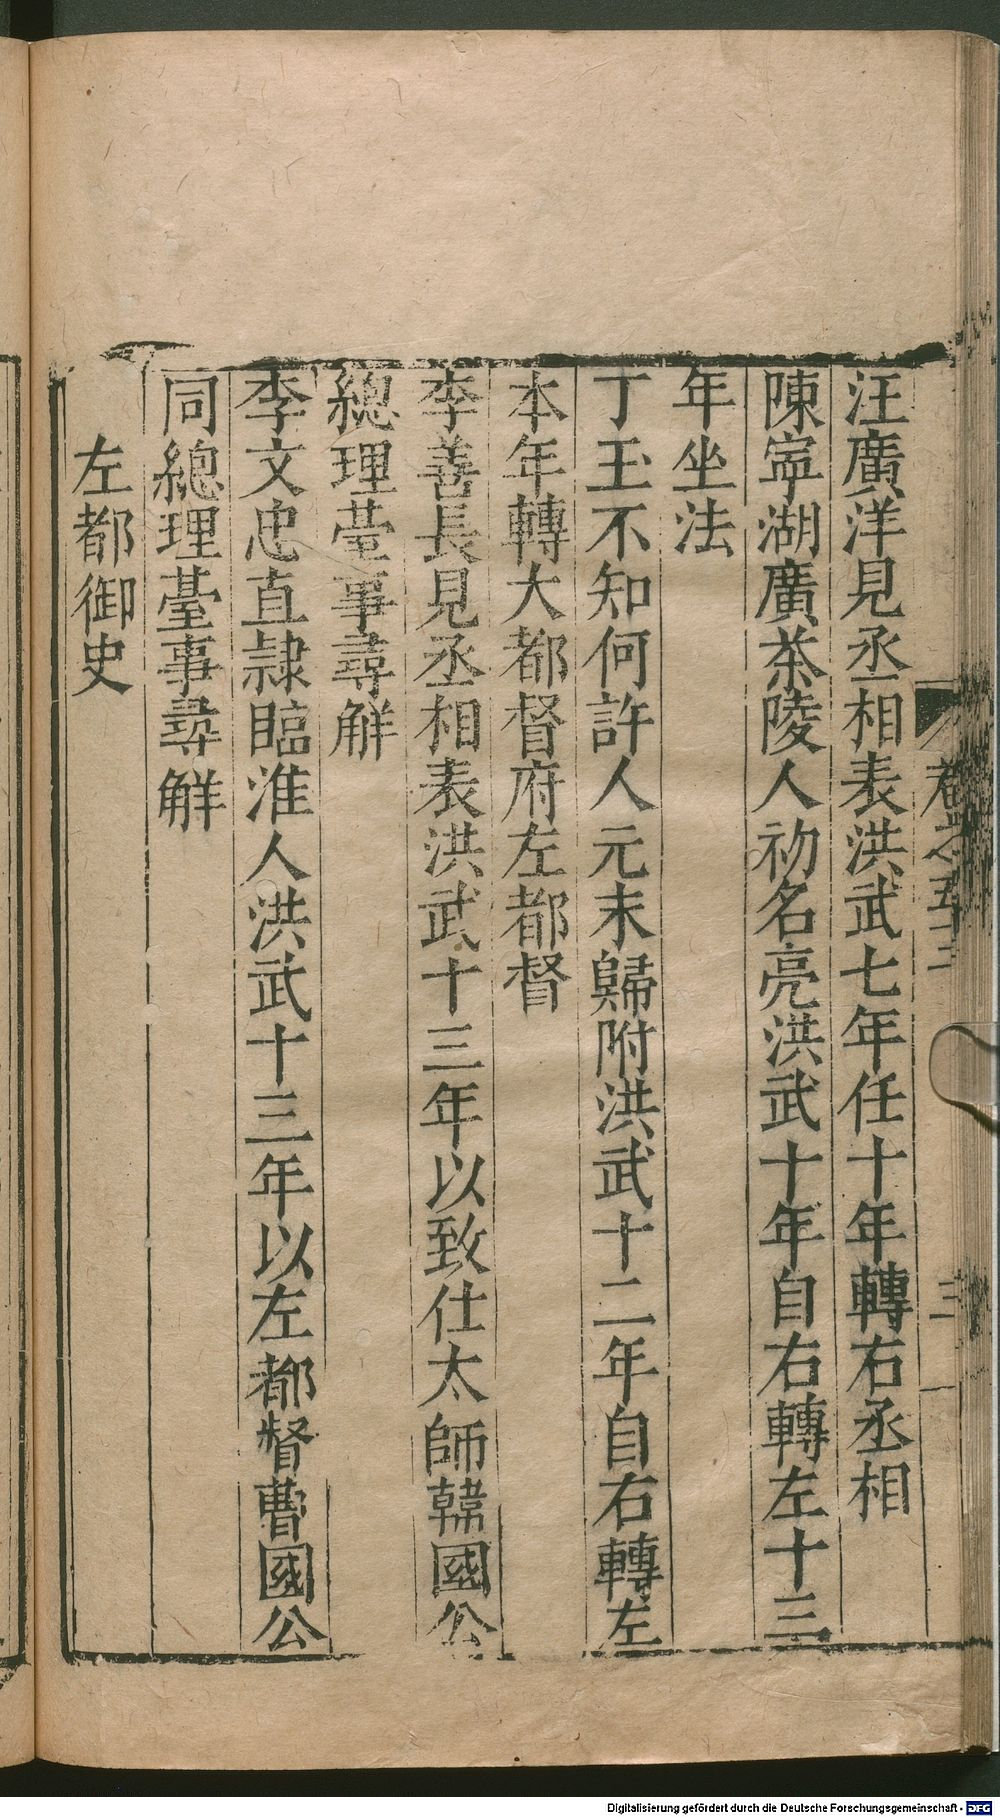 汪廣洋見丞相表洪武七年任十年轉右丞相
陳寧湖廣茶陵人初名亮洪武十年自右轉左十三
年坐法
丁玉不知何許人元末歸附洪武十二年自右轉左
本年轉大都督府左都督
李善長見丞相表洪武十三年以致仕太師韓國公
總理臺事尋解
李文忠直隷臨淮人洪武十三年以左都督曹國公
同總理臺事尋解
左都御史
卷之五十三
三
Digitalisierung gefördert durch die Deutsche Forschungsgemeinschaft - DFG